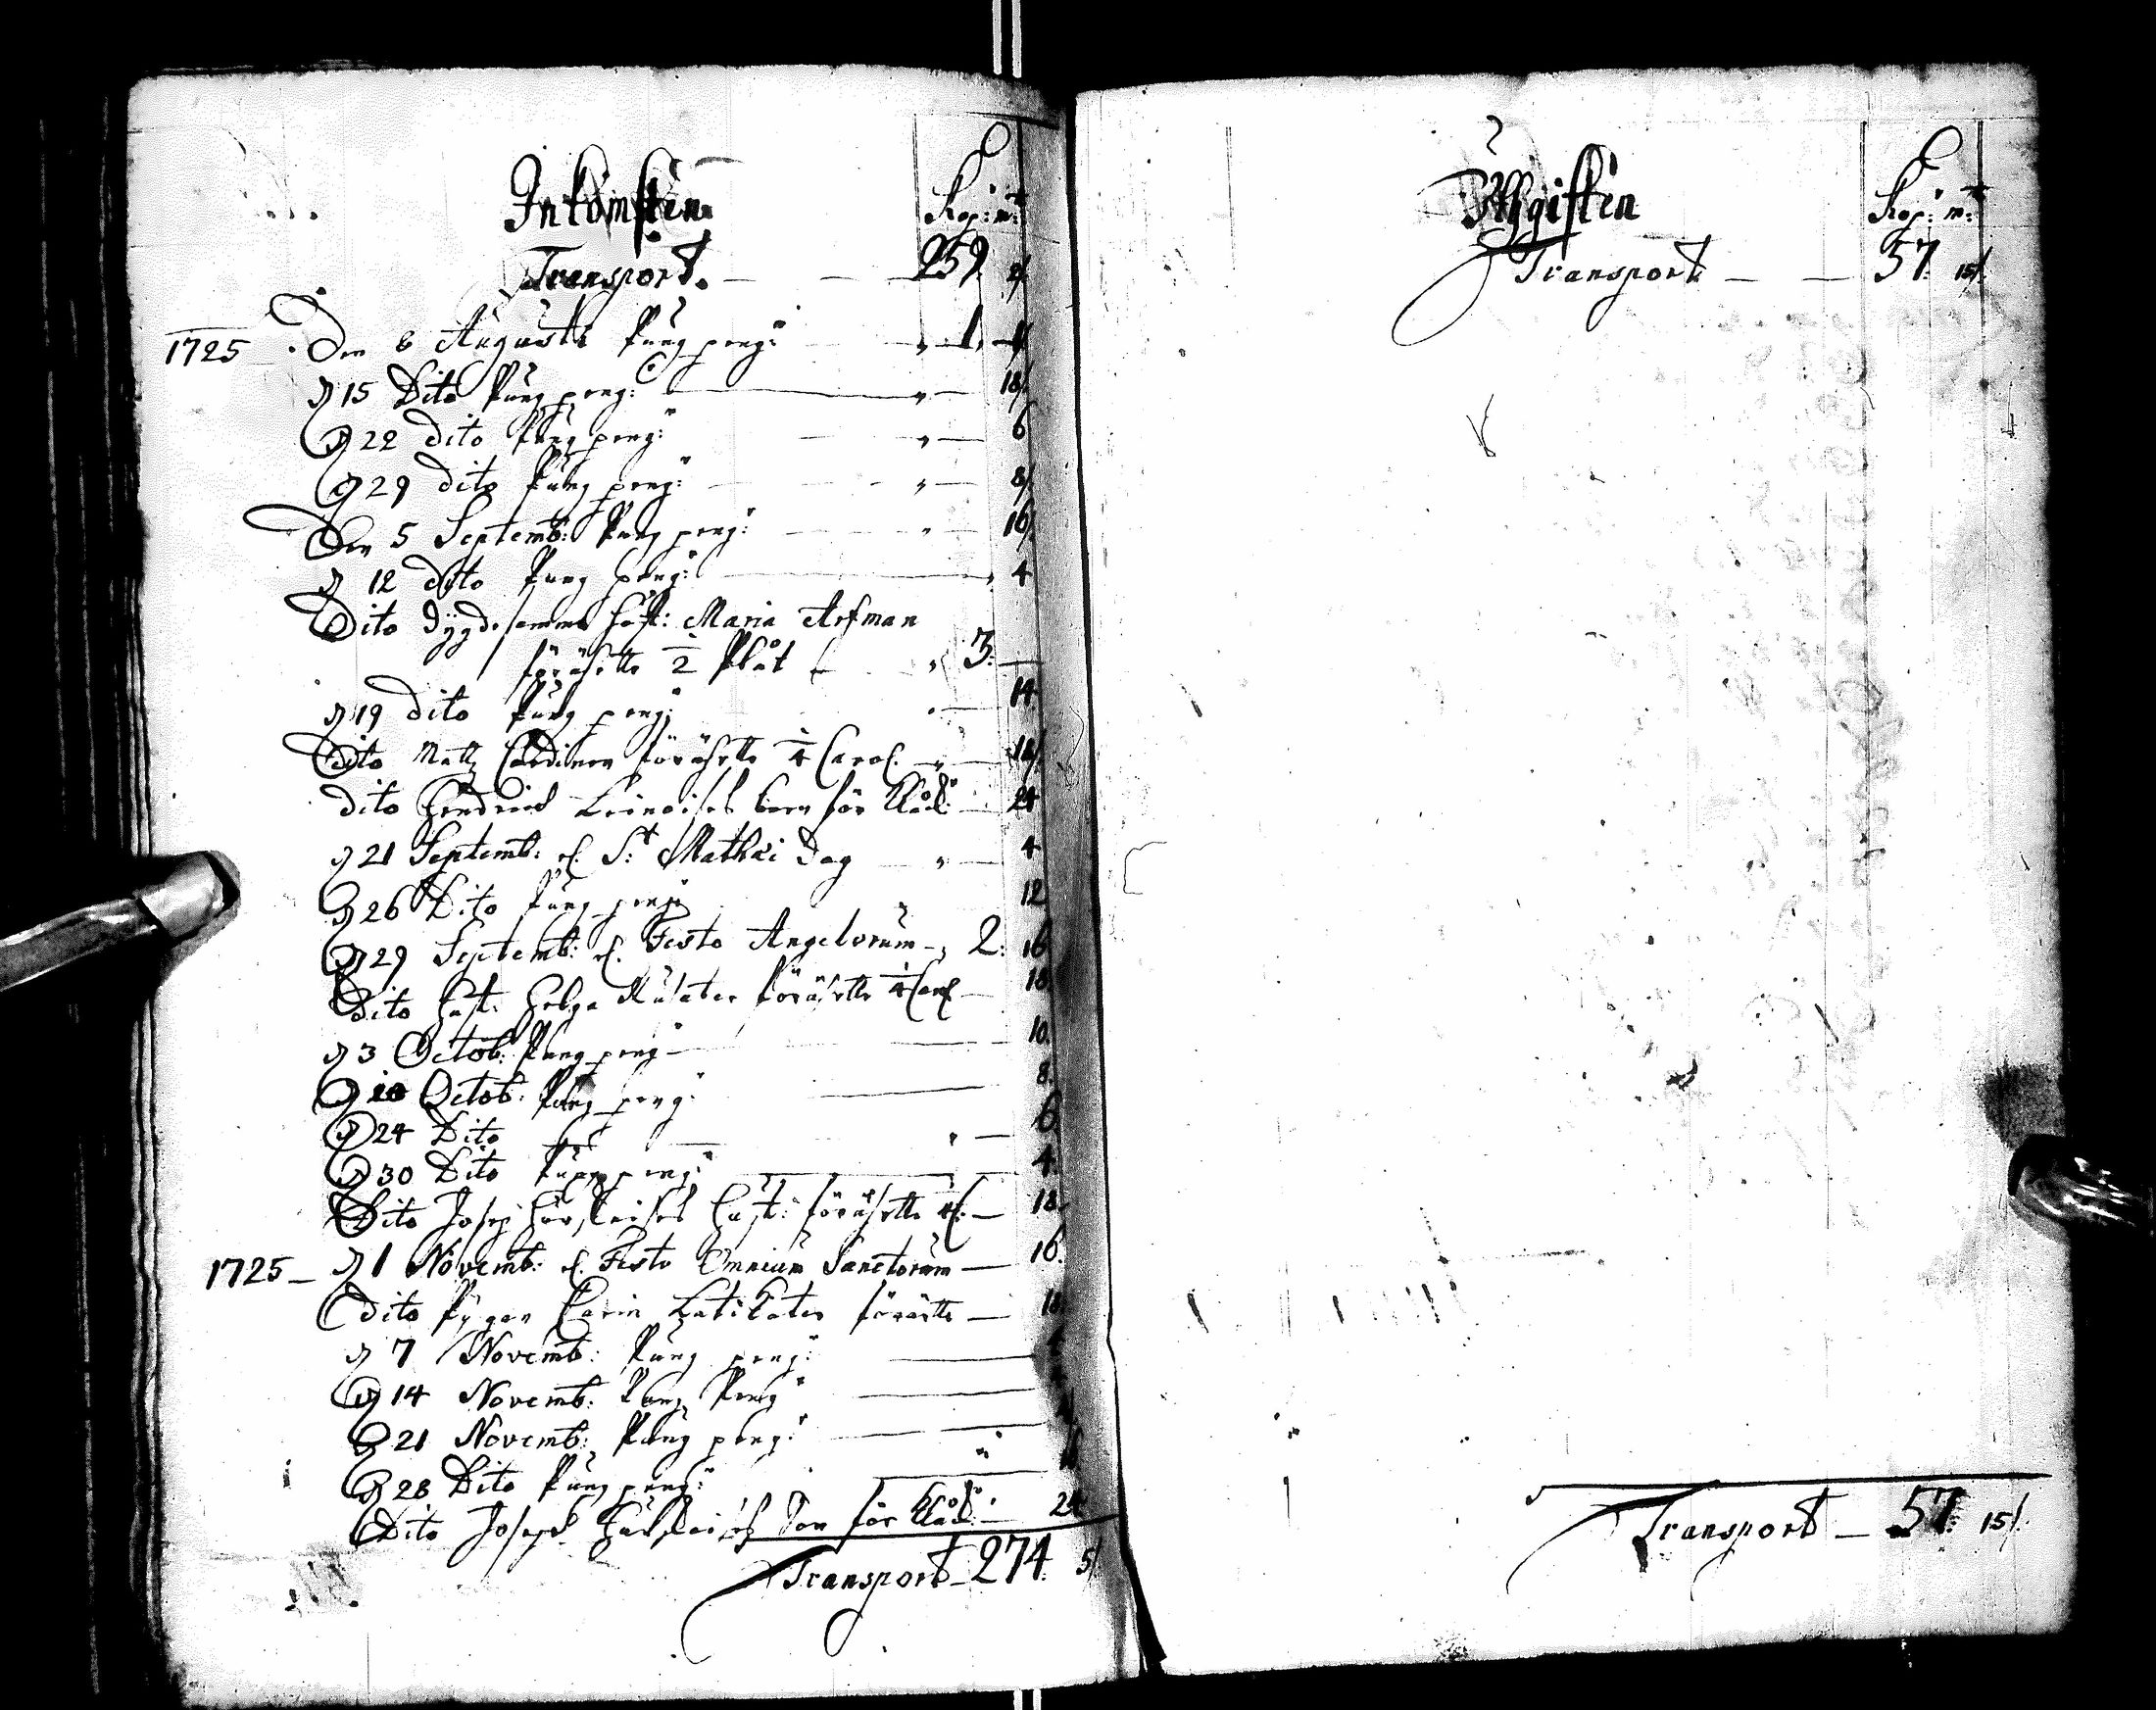 Inkomsten
Kop: mt
Transport. 259 2/.
1725 Den 8 Augusti Pung peng: 1.
D 15 Dito Pung peng: 18/.
D 22 dito Pung peng: 6
D 29 dito Pung peng: 8/.
Den 5 Septemb: Pung peng: 16/.
D 12 dito Pung peng: 4
Dito dygdesamma Hust: Maria Arfman
förährte 1/2 Plåt 3:
D 19 dito Pung peng: 14
Dito Matz förährte 1/4 Carol. 18/.
dito Hendrich barn för Kläd: 24
D 21 Septemb: et St: Mathæi Dag 4
D 26 Dito Pung peng: 12
D 29 Septemb: et Festo Angelorum 2: 16
Dito Hust: Helga förährte 1/4 Carol 18
D 3 Octob: Pung peng 10.
D 10 Octob: Pung peng: 8.
D 24 Dito 6
D 30 Dito Pung peng: 4.
Dito Josep Hust: förährte 18.
1725 D 1 Novemb: et Festo Omnium Sanctorum 16.
Dito Pygan Carin förärte 18
D 7 Novemb: Pung peng:
D 14 Novemb: Pung Peng
D 21 Novemb: Pung peng:
D 28 Dito Pung peng:
Dito Joseph Son för Kläd: 24
Transport 274. 5/.
Uthgiften
Kop: mt
Transport 57. 15/.
Transport 57. 15/.